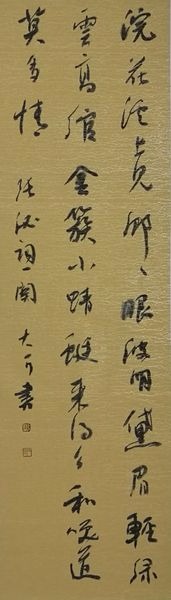 浣花溪上見卿々眼波明黛眉輕緑
雲高綰金簇小蜻蜓来得么和笑道
莫多情 張泌詞一闋 大可書